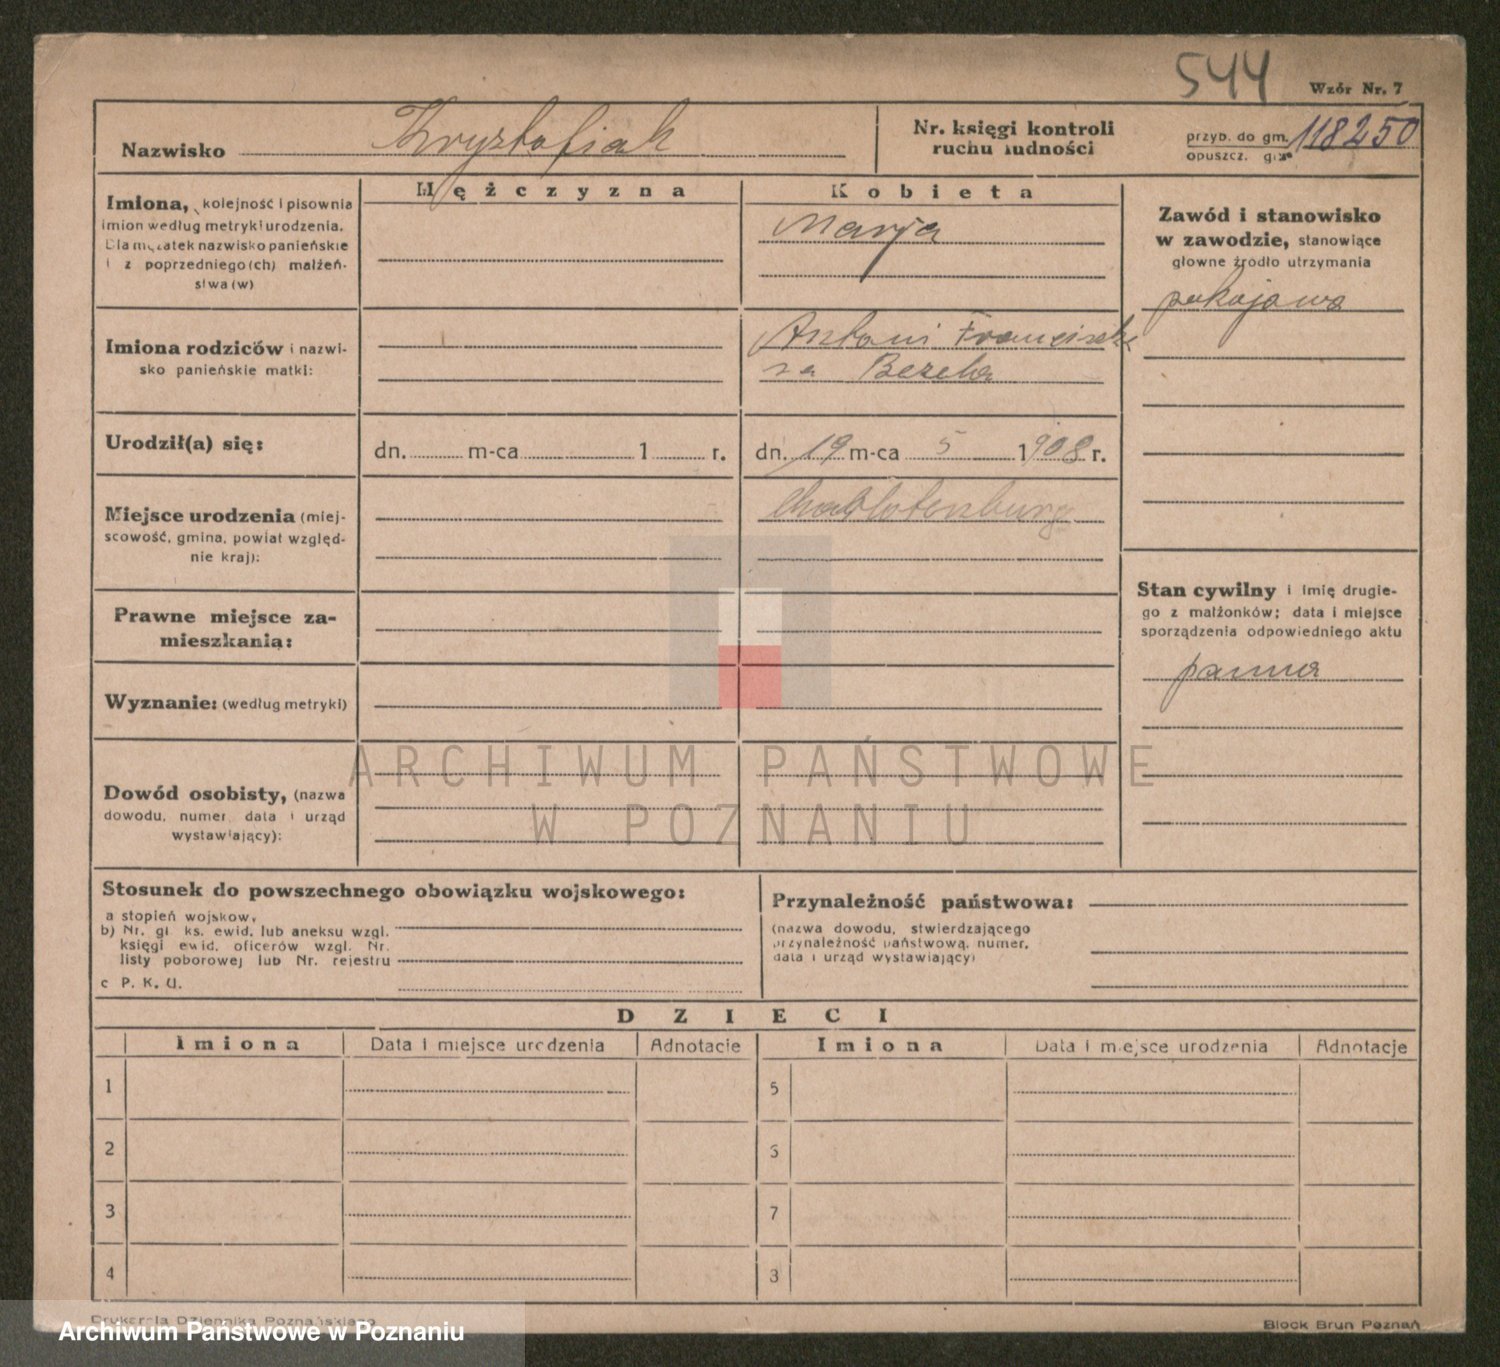 544
Wzór Nr. 7
Nazwisko Krysztofiak
Nr. księgi kontroli
ruchu ludności
przyb. do gm. 118250
opuszcz. gm.
Mężczyzna
Kobieta
Imiona, kolejność i pisownia
imion według metryki urodzenia.
Dla mężatek nazwisko panieńskie
i z poprzedniego(ch) małżeń-
stwa(w)
Marja
Zawód i stanowisko
w zawodzie, stanowiące
głowne źródło utrzymania
pokojowa
Imiona rodziców i nazwi-
sko panieńskie matki:
Antoni
Bezela
Urodził(a) się:
dn. m-ca 1 r.
dn. 19 m-ca 5 1908 r.
Miejsce urodzenia (miej-
scowość, gmina, powiat względ-
nie kraj):
Charlotenburg
Stan cywilny i imię drugie-
go z małżonków; data i miejsce
sporządzenia odpowiedniego aktu
panna
Prawne miejsce za-
mieszkania:
Wyznanie: (według metryki)
ARCHIWUM PAŃSTWOWE
W POZNANIU
Dowód osobisty, (nazwa
dowodu, numer, data i urząd
wystawiający):
Stosunek do powszechnego obowiązku wojskowego:
a stopień wojskow,
b) Nr. gł. ks. ewid. lub aneksu wzgl.
księgi ewid. oficerów wzgl. Nr.
listy poborowej lub Nr. rejestru
c P. K. U.
Przynależność państwowa:
(nazwa dowodu, stwierdzającego
przynależność państwową, numer,
data i urząd wystawiający)
DZIECI
Imiona Data i miejsce urodzenia Adnotacje Imiona Data i miejsce urodzenia Adnotacje
1 5
2 6
3 7
4 8
Drukarnia Dziennika Poznańskiego
Block Brun Poznań
Archiwum Państwowe w Poznaniu